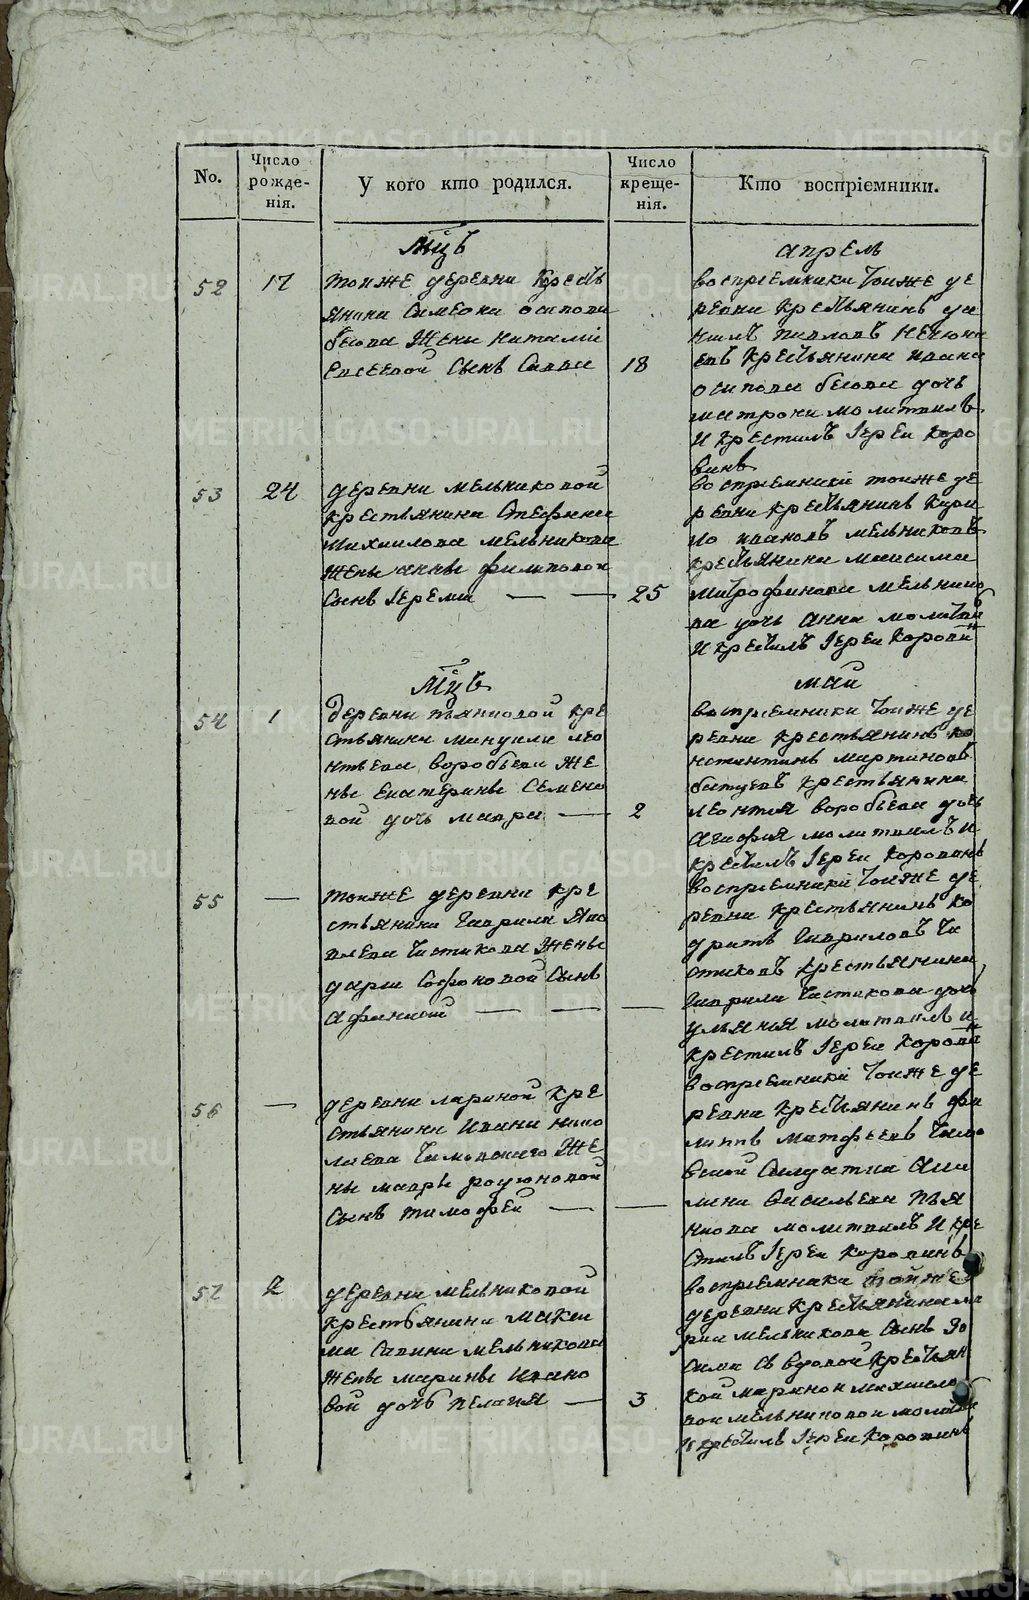 No.
Число рожде- нія.
У кого кто родился.
Число креще- нія.
Кто воспріемники.
Мцъ
апрель
52 17
тоиже деревни Кресть
янина Симеона осипова
бесова Жены Наталіи
Евсеевой Сынъ Савва 18
воспрiемники тоиже де
ревни крестьянинъ да
нилъ павловъ
евъ крестьянина ивана
осипова бесова дочь
матрона молитвилъ
и Крестилъ Іереи Коро
винъ
53 24
деревни мельниковой
крестьянина Стефана
михаилова мельникова
жены анны филиповои
Сынъ Іеремиа 25
воспрiемники тоиже де
ревни крестьянинъ кири
ло ивановъ мельниковъ
крестьянина максима
митрофанова мельнико
ва дочь анна молитви
и крестилъ Іереи Корови
Мцъ
маи
54 1
деревни пьянковой кре
стьянина мануила лео
нтьева воробьева же
ны екатерины Семено
вой дочь мавра 2
воспрiемники тоиже де
ревни крестьянинъ ко
нстантинъ мартиновъ
батуевъ крестьянина
леонтия воробьева дочь
агафия молитвилъ и
крестилъ Іереи Коровинъ
55 —
тоиже деревни кре
стьянина гаврила яко
влева Чистикова жены
дарьи Софоновой Сынъ
афанасий — — —
воспрiемники тоиже де
ревни крестьянинъ ко
дратъ гавриловъ Чи
стиковъ крестьянина
гаврила Чистикова дочь
ульяния молитвилъ и
крестилъ Іереи Корови
56 —
деревни лариной кре
стьянина ивана нико
лаева же
ны мавры родионовой
Сынъ тимофей — —
воспрiемники тоиже де
ревни крестьянинъ фи
липпъ матфеевъ
Солдатка аки
лина васильева пья
нкова молитвилъ и кре
стилъ Іереи Коровинъ
57 2
деревни мельниковой
крестьянина макси
ма Савина мельникова
жены марины ивано
вой дочь пелагия — 3
воспрiемники тоиже
деревни крестьянина ма
рка мельникова Сынъ зо
сима Съ вдовой крестьян
кой мариной михаило
вои мельниковои молитви
и крестилъ Іереи Коровинъ